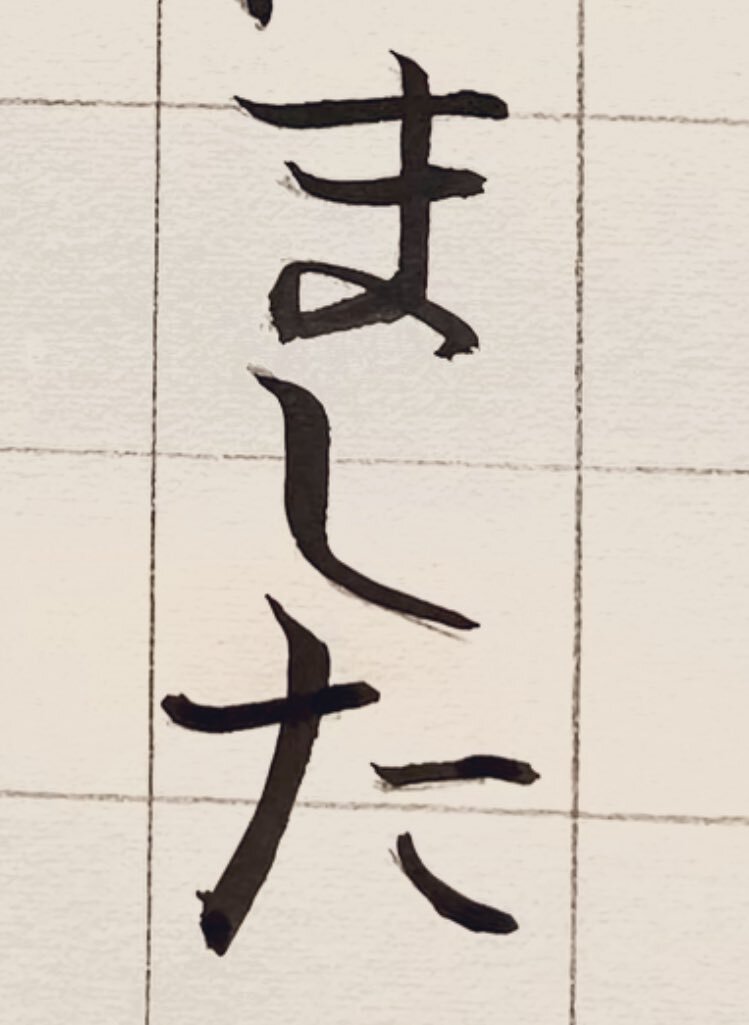 ました